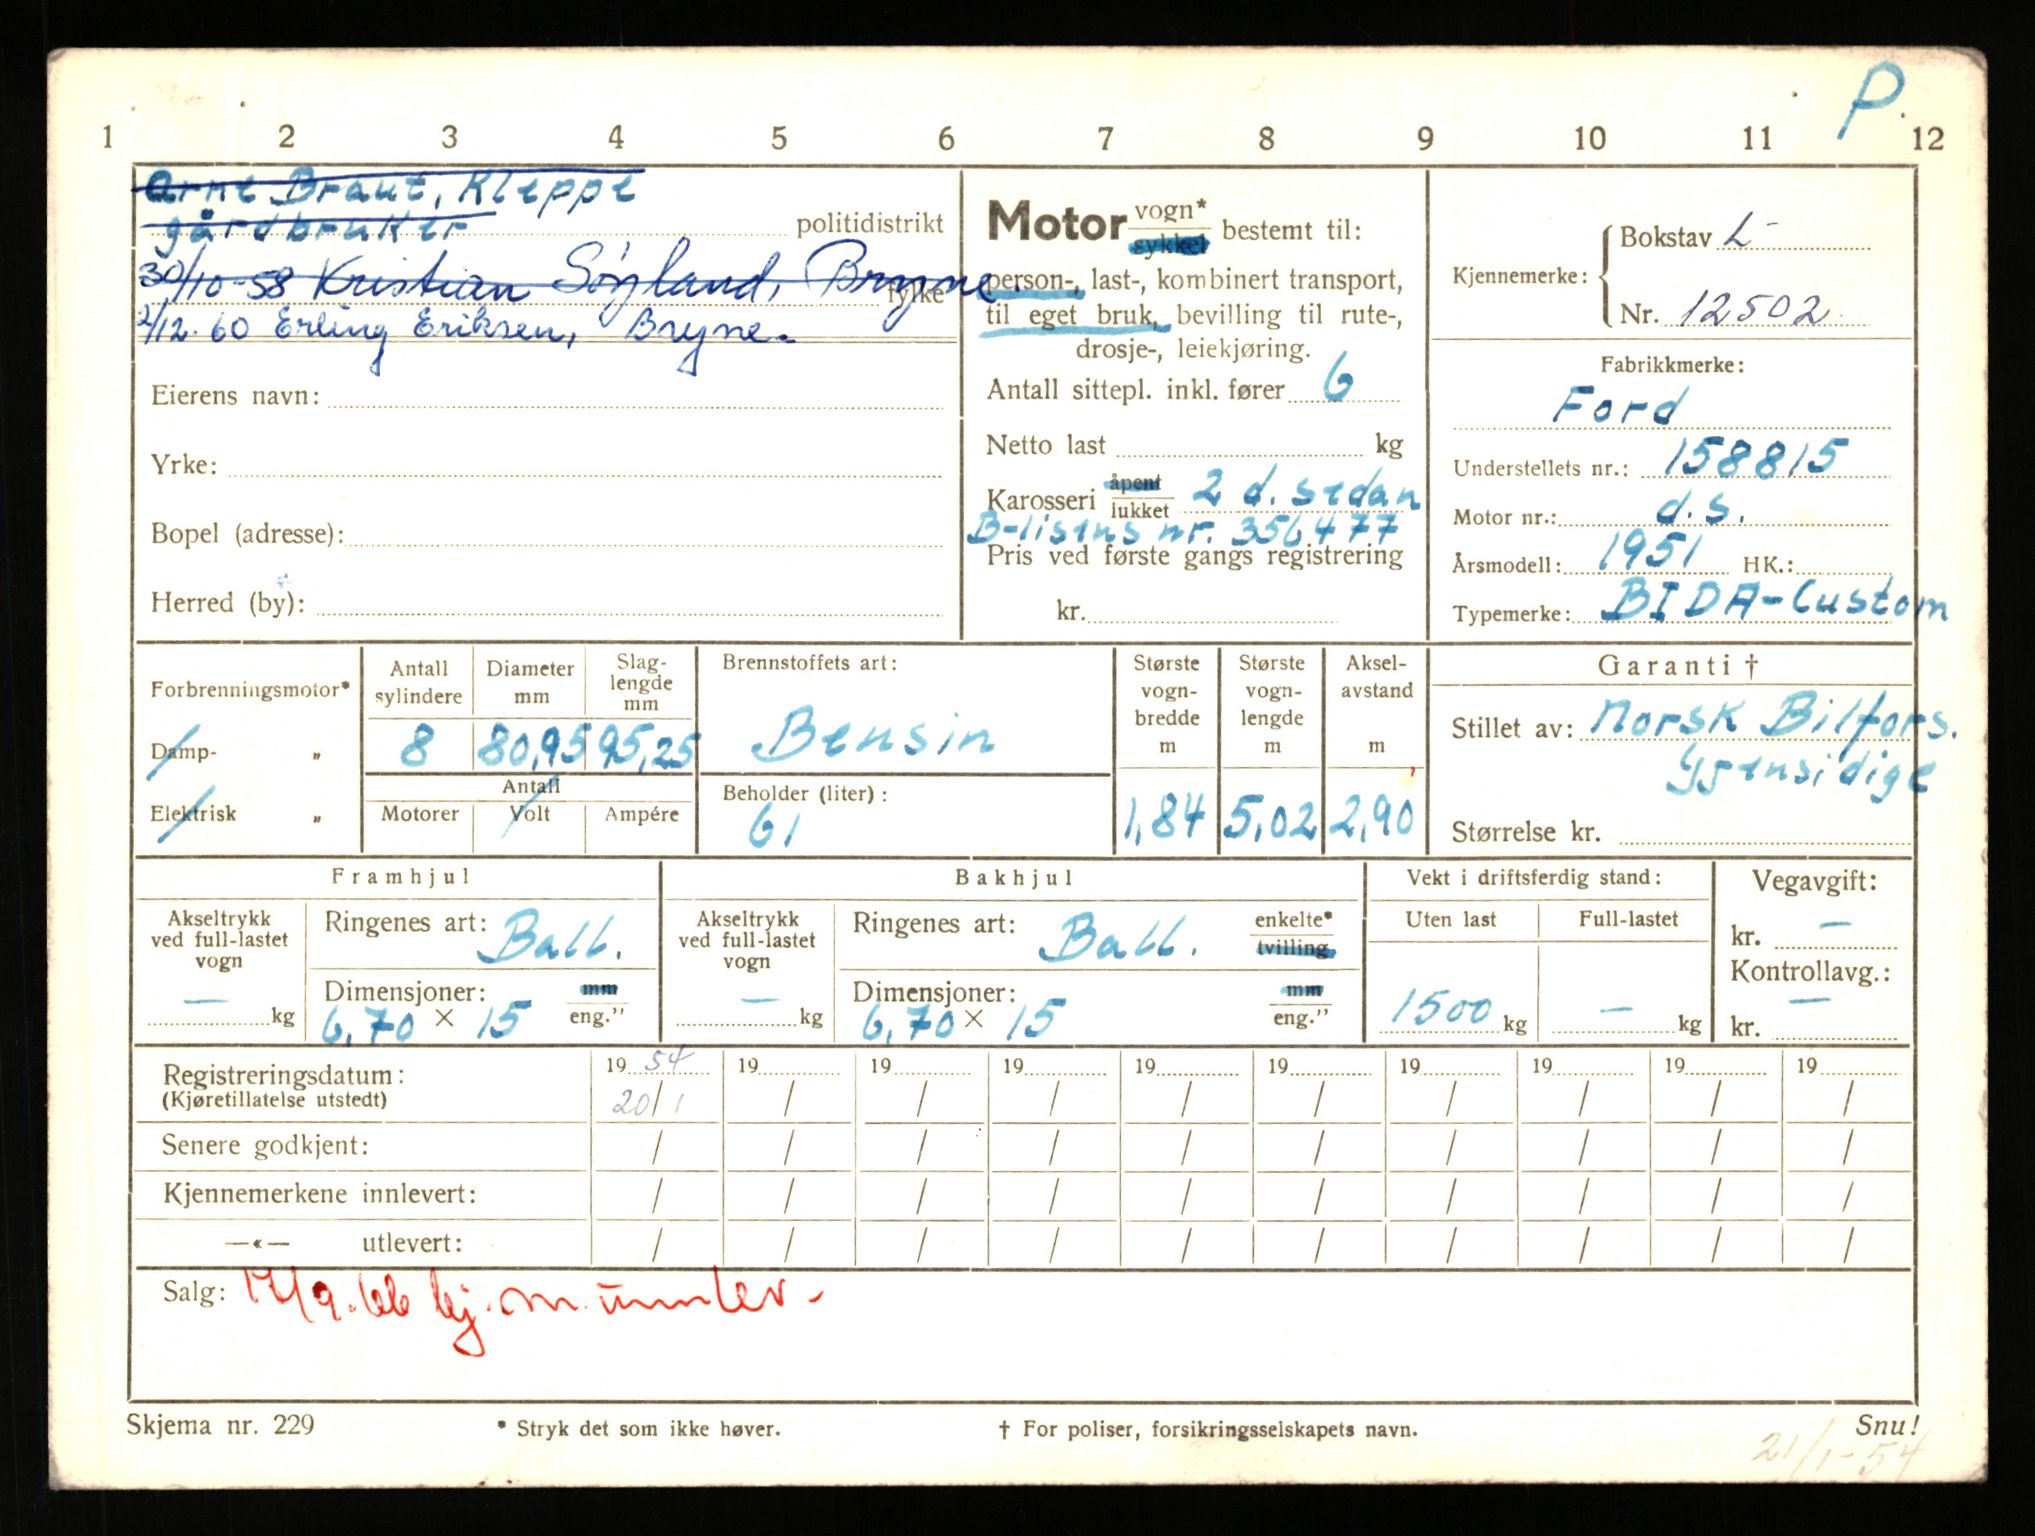 P.
1 2 3 4 5 6 7 8 9 10 11 12
Arne Braut, Kleppe
gårdbruker politidistrikt
30/10-58 Kristian Søyland, Bryne fylke
2/12-60 Erling Eriksen, Bryne.
Eierens navn:
Yrke:
Bopel (adresse):
Herred (by):
Motor vogn* sykkel bestemt til:
person-, last-, kombinert transport,
til eget bruk, bevilling til rute-,
drosje-, leiekjøring.
Antall sittepl. inkl. fører 6
Netto last kg
Karosseri åpent lukket 2 d. sedan
B-lisens nr. 356477
Pris ved første gangs registrering
kr.
Kjennemerke: Bokstav L-
Nr. 12502
Fabrikkmerke:
Ford
Understellets nr.: 158815
Motor nr.: d.s.
Årsmodell: 1951 HK.:
Typemerke: BIDA-Custom
Forbrenningsmotor*
Damp- „
Elektrisk „
Antall sylindere 8
Diameter mm 80,95
Slag-lengde mm 95,25
Antall
Motorer Volt Ampére
Brennstoffets art:
Bensin
Beholder (liter):
61
Største vogn-bredde m 1,84
Største vogn-lengde m 5,02
Aksel-avstand m 2,90
Garanti †
Stillet av: Norsk Bilfors.
Gjensidige
Størrelse kr.
Framhjul
Akseltrykk ved full-lastet vogn — kg
Ringenes art: Ball.
Dimensjoner: mm
6,70 × 15 eng.”
Bakhjul
Akseltrykk ved full-lastet vogn — kg
Ringenes art: Ball. enkelte* tvilling
Dimensjoner: mm
6,70 × 15 eng.”
Vekt i driftsferdig stand:
Uten last Full-lastet
1500 kg — kg
Vegavgift:
kr. —
Kontrollavg.:
kr. —
Registreringsdatum: 19 54 19 19 19 19 19 19 19 19 19
(Kjøretillatelse utstedt) 20/1 / / / / / / / / /
Senere godkjent: / / / / / / / / / /
Kjennemerkene innlevert: / / / / / / / / / /
—«— utlevert: / / / / / / / / / /
Salg: /9.66 kj.m. innlev.
Skjema nr. 229 * Stryk det som ikke høver. † For poliser, forsikringsselskapets navn. Snu!
21/1-54